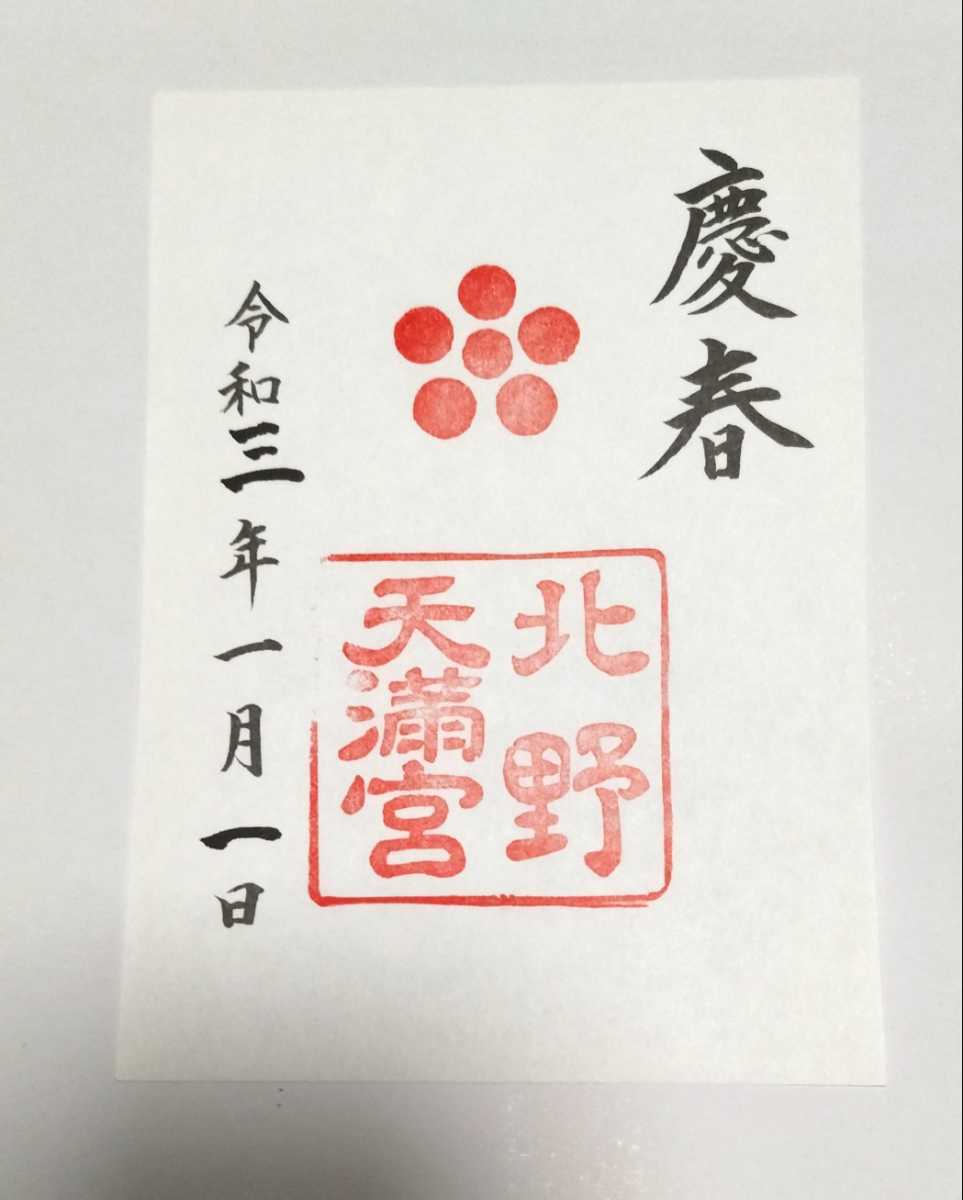 慶春
北野
天満宮
令和三年一月一日